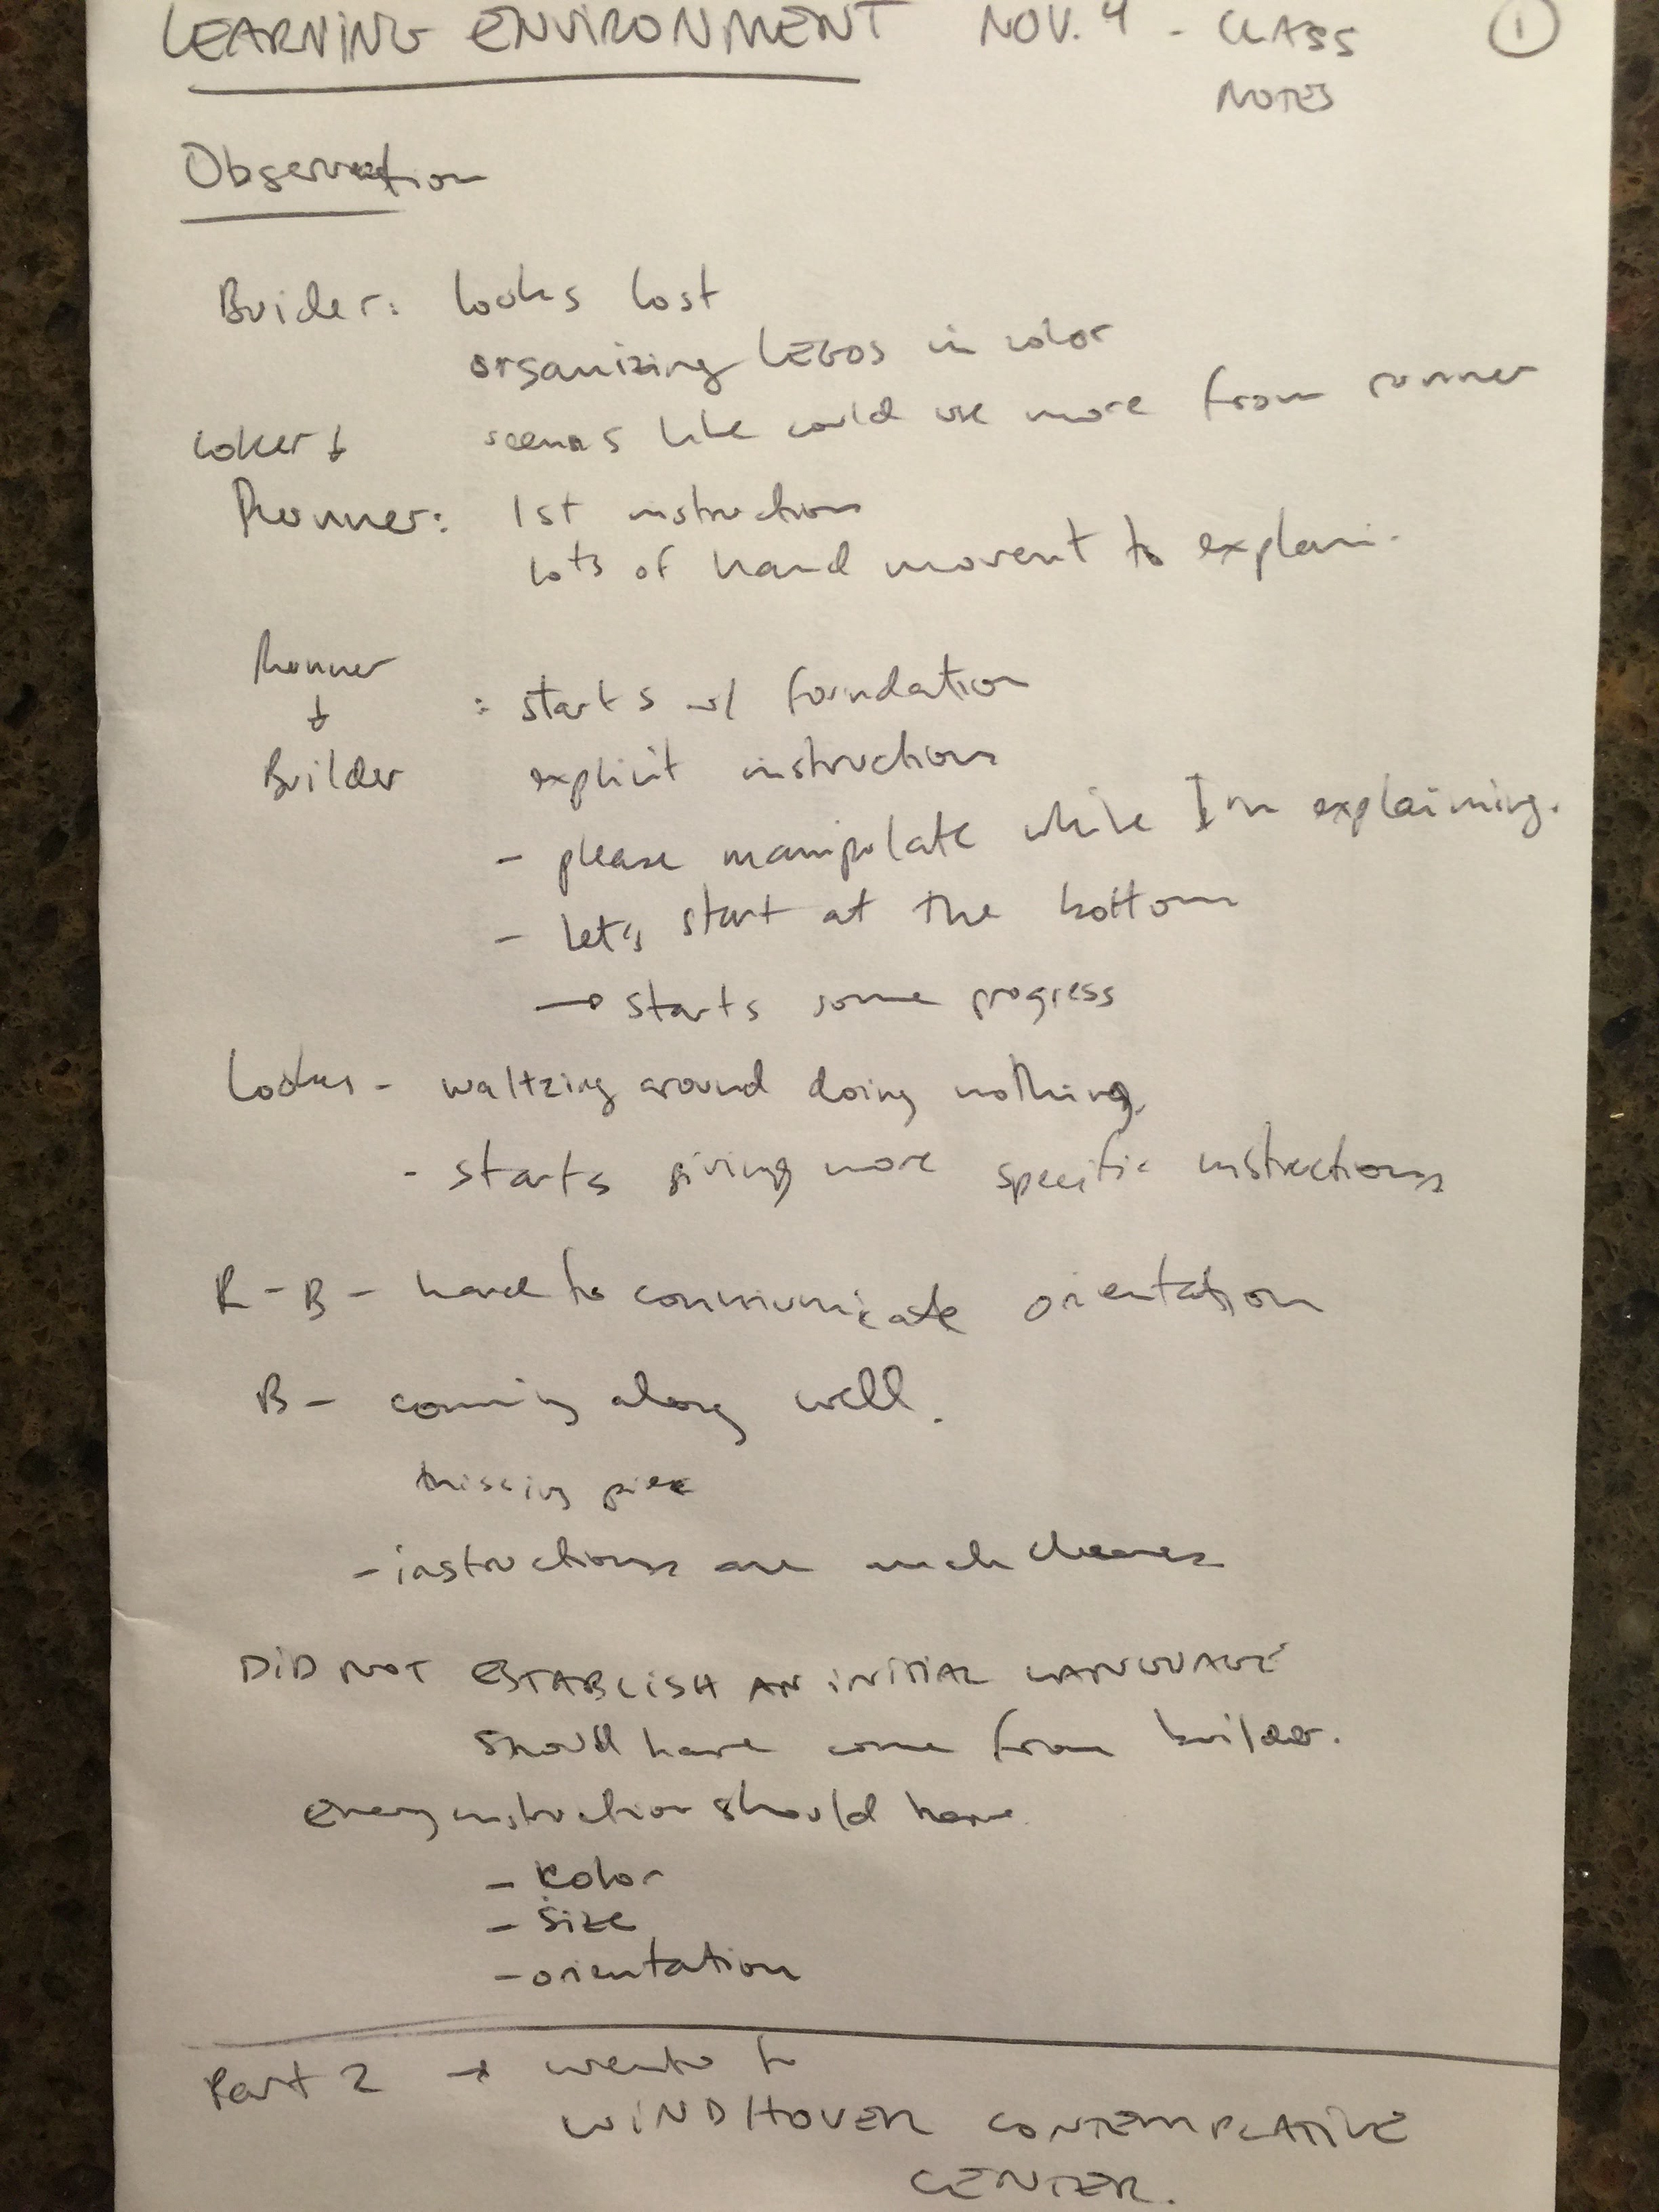 LEARNING ENVIRONMENT NOV. 4 - CLASS ①
NOTES
Observation
Buider: looks lost
organizing LEGOS in color
seems like could use more from runner
Looker ↓
Runner: 1st instructions
lots of hand movent to explain.
Runner
↓ : starts w/ foundation
Builder explicit instructions
- please manipulate while I'm explaining.
- let's start at the bottom
→ starts some progress
Looker - waltzing around doing nothing.
- starts giving more specific instructions
R - B - hard to communicate orientation
B - coming along well.
missing piece
- instructions are much clearer
DID NOT ESTABLISH AN INITIAL LANGUAGE
should have come from builder.
every instruction should have
- Color
- Size
- orientation
Part 2 → went to
WINDHOVER CONTEMPLATIVE
CENTER.